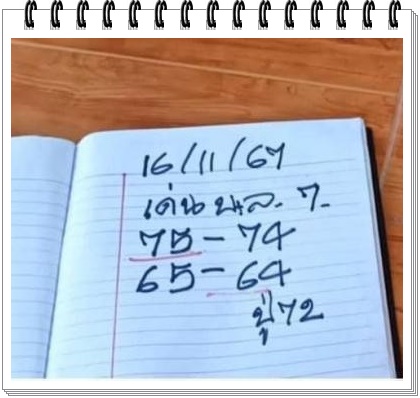 16/11/67
เด่น บ.ล. 7.
75-74
65-64
ปู่72